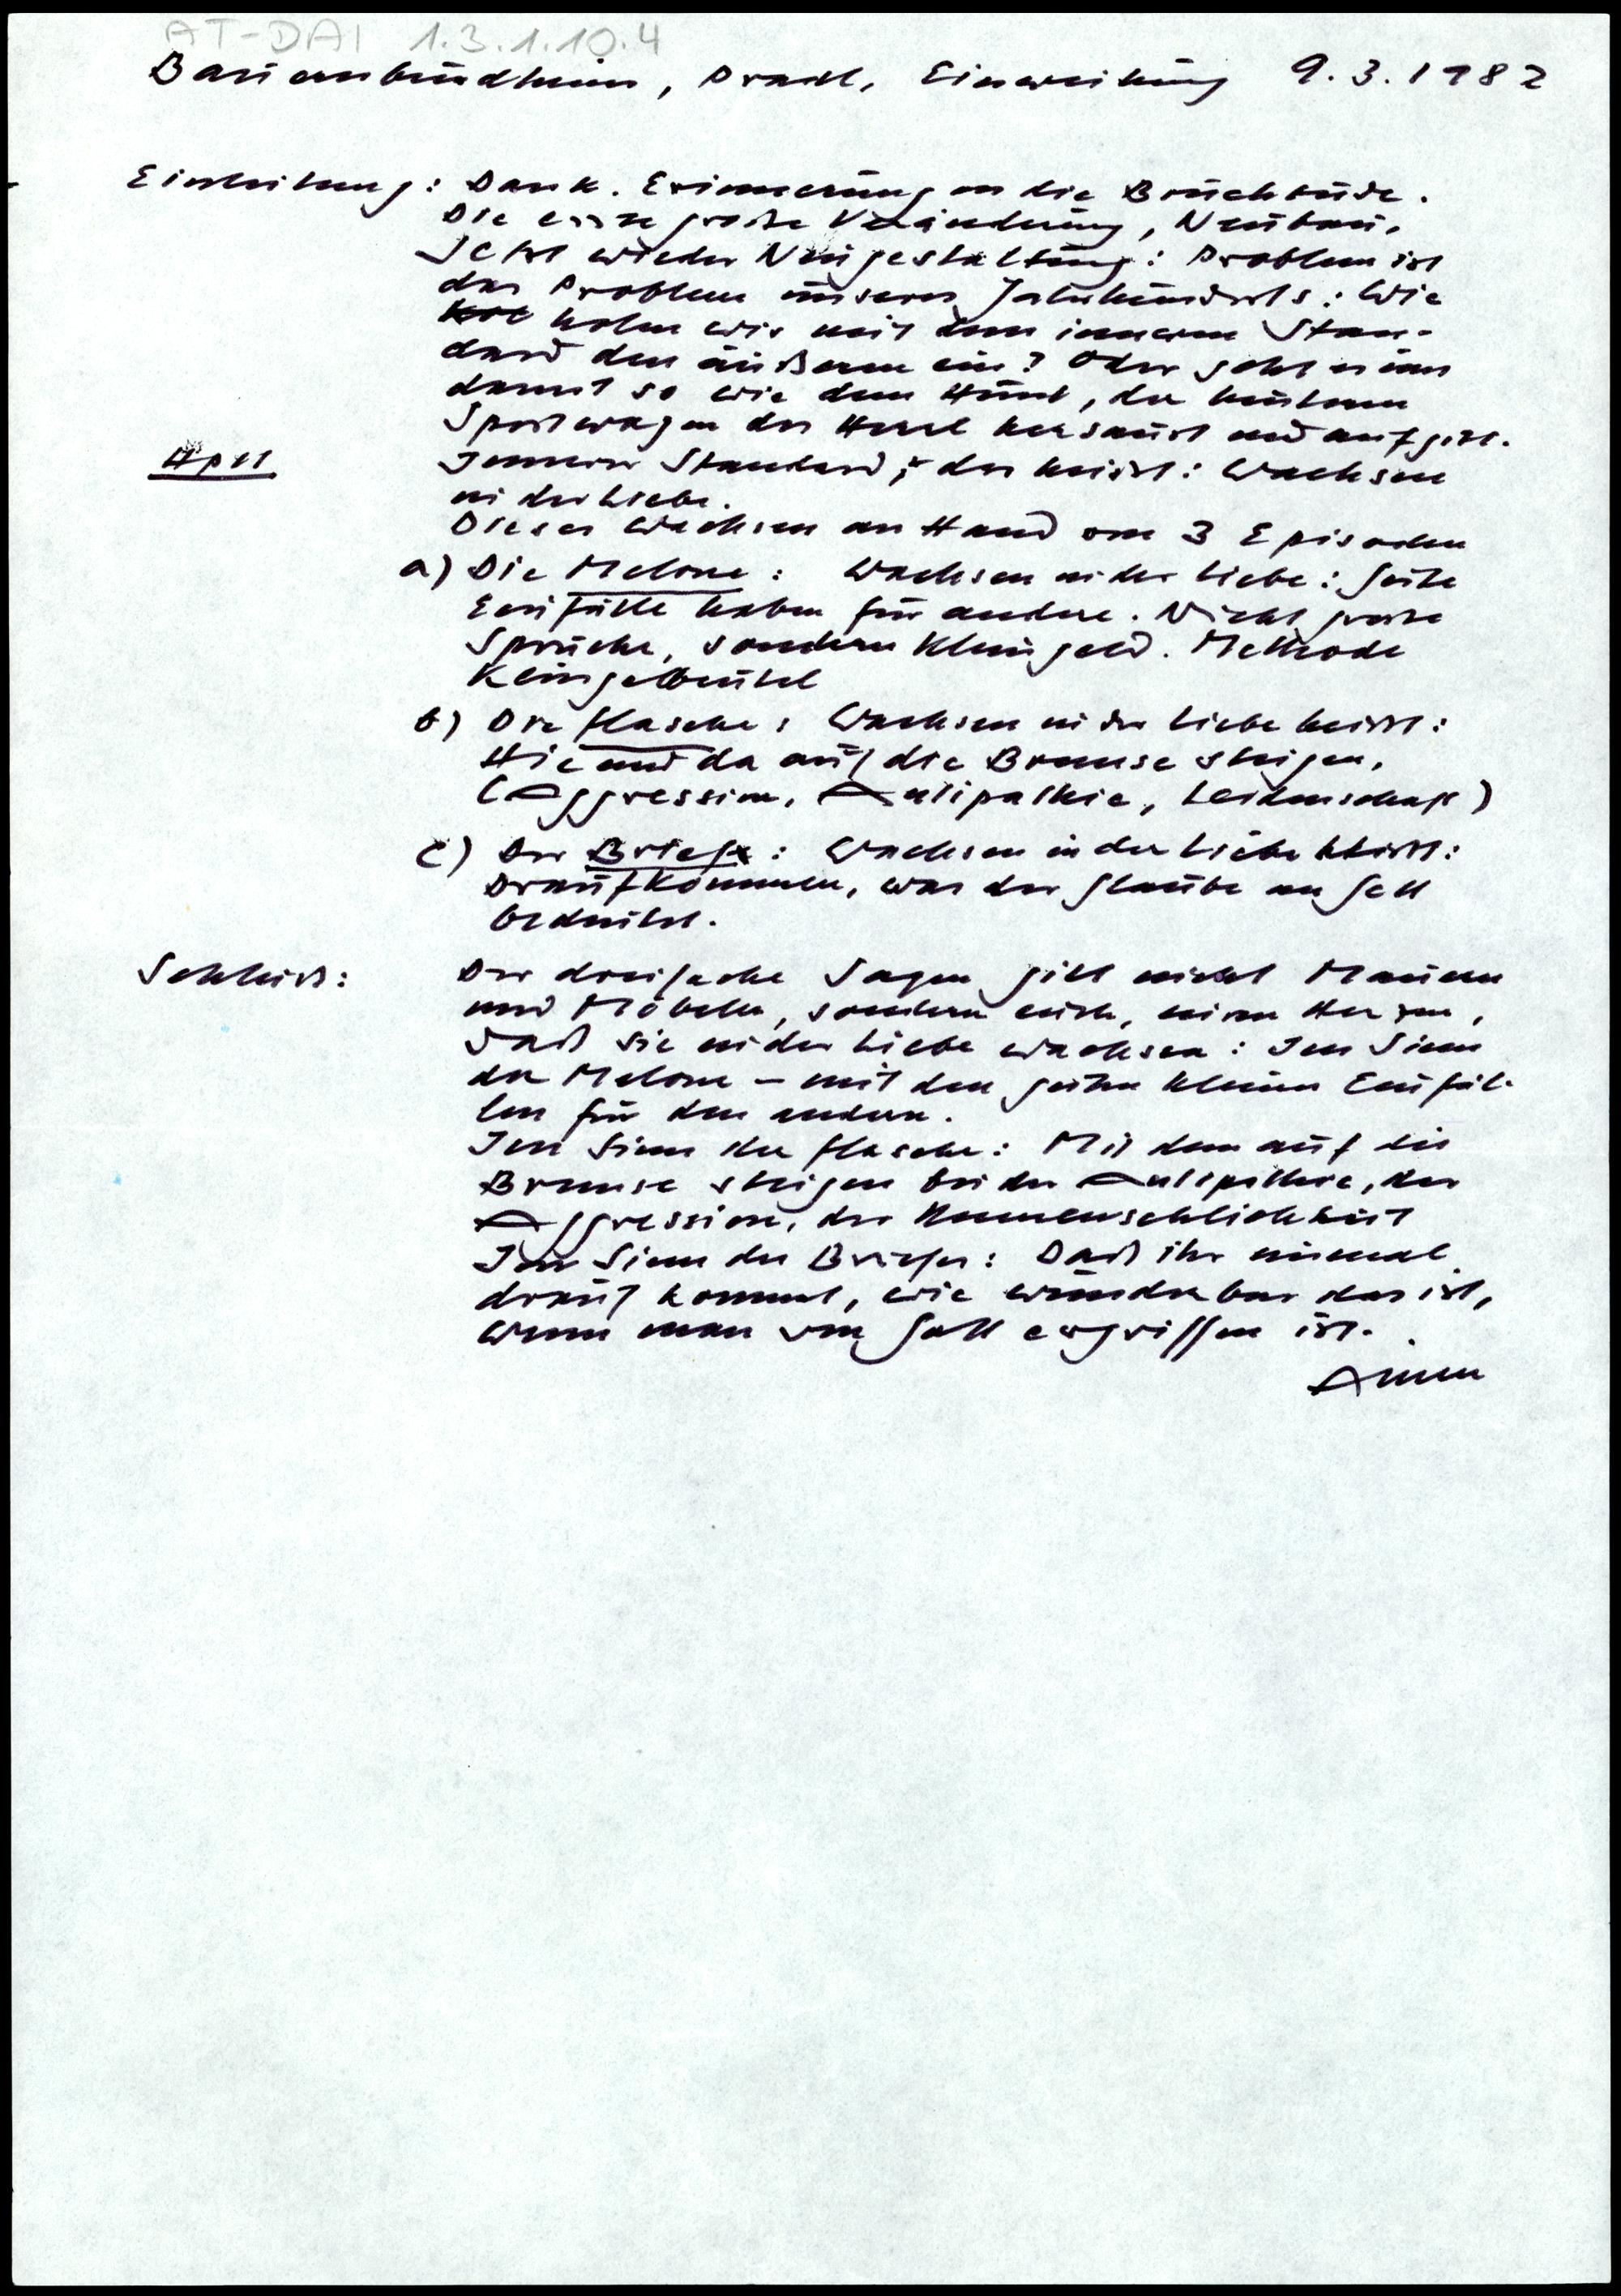 AT-DAI 1.3.1.10.4
Bauernbundheim, Pradl, Einweihung 9.3.1982
Einleitung: Dank. Erinnerung an die Bruchbude.
Die erste große Veränderung, Neubau.
Jetzt wieder Neugestaltung: Problem ist
das Problem unseres Jahrhunderts: Wie
holen wir mit dem inneren Stan-
dard den äußeren ein? Oder geht es uns
damit so wie dem Hund, der hinterm
Sportwagen des Herrl hersaust und aufgibt.
Hptl
Innerer Standard, das heisst: Wachsen
in der Liebe.
Dieses Wachsen an Hand von 3 Episoden
a) Die Melone: Wachsen in der Liebe: Gute
Einfälle haben für andere. Nicht große
Sprüche, sondern Kleingeld. Methode
Klingelbeutel
b) Die Flasche: Wachsen in der Liebe heisst:
Hie und da auf die Bremse steigen.
(Aggression, Antipathie, Leidenschaft)
c) Der Brief: Wachsen in der Liebe heisst:
Draufkommen, was der Glaube an Gott
bedeutet.
Schluß: Der dreifache Segen gilt nicht Mauern
und Möbeln, sondern euch, euren Herzen,
daß sie in der Liebe wachsen: Im Sinn
der Melone - mit den guten kleinen Einfäl-
len für den andern.
Im Sinn der Flasche: Mit dem auf die
Bremse steigen bei der Antipathie, der
Aggression, der Unmenschlichkeit
Im Sinn des Briefes: Daß ihr einmal
drauf kommt, wie wunderbar das ist,
wenn man von Gott ergriffen ist.
Amen